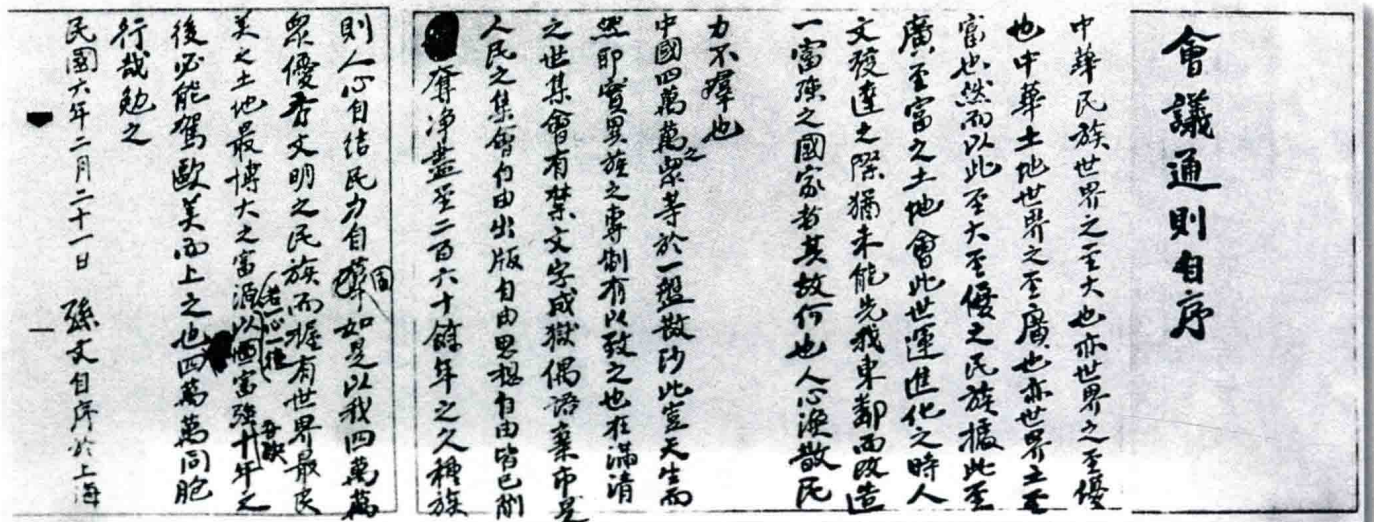 會議通則自序
中華民族世界之至大也亦世界之至優
也中華土地世界之至廣也亦世界之至
富也然而以此至大至優之民族據此至
廣至富之土地會此世運進化之時人
文發達之際猶未能先我東鄰而改造
一富強之國家者其故何也人心渙散民
力不羣也
中國四萬萬之衆等於一盤散沙此豈天生而
然即實異族之專制有以致之也在滿清
之世集會有禁文字成獄偶語棄市是
人民之集會自由出版自由思想自由皆已削
奪净盡至二百六十餘年之久種族
則人心自結民力自固如是以我四萬萬
衆優秀文明之民族而握有世界最良
美之土地最博大之富源若一心一德以圖富強吾決十年之
後必能駕歐美而上之也四萬萬同胞
行哉勉之
民國六年二月二十一日 孫文自序於上海